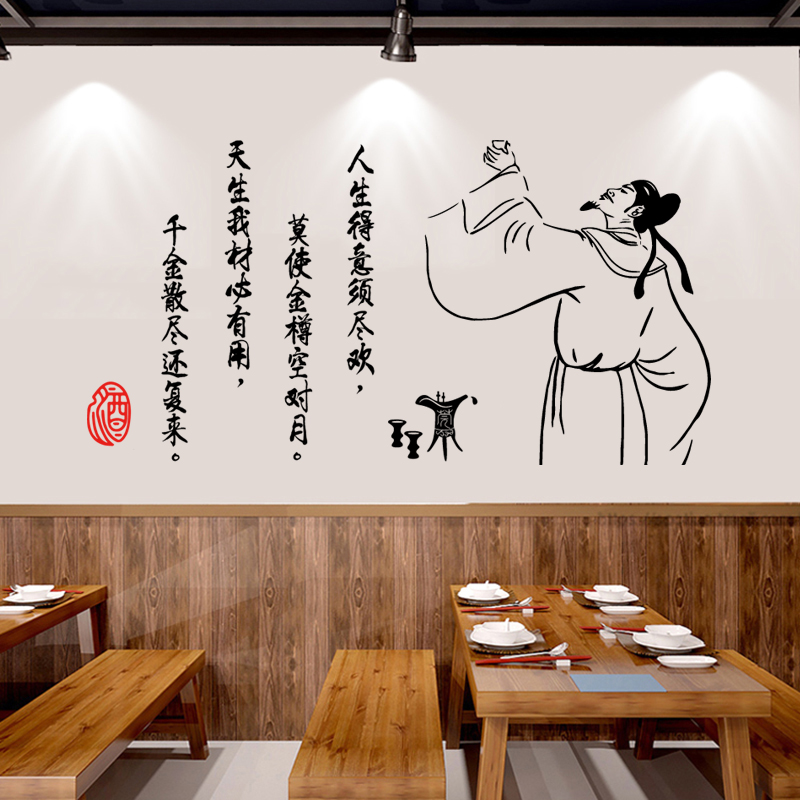 人生得意须尽欢，
莫使金樽空对月。
天生我材必有用，
千金散尽还复来。
酒